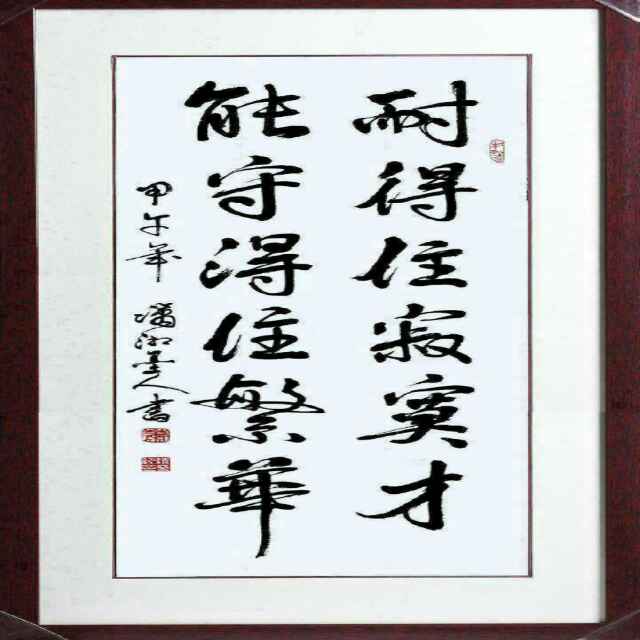 耐得住寂寞才
能守得住繁華
甲午年